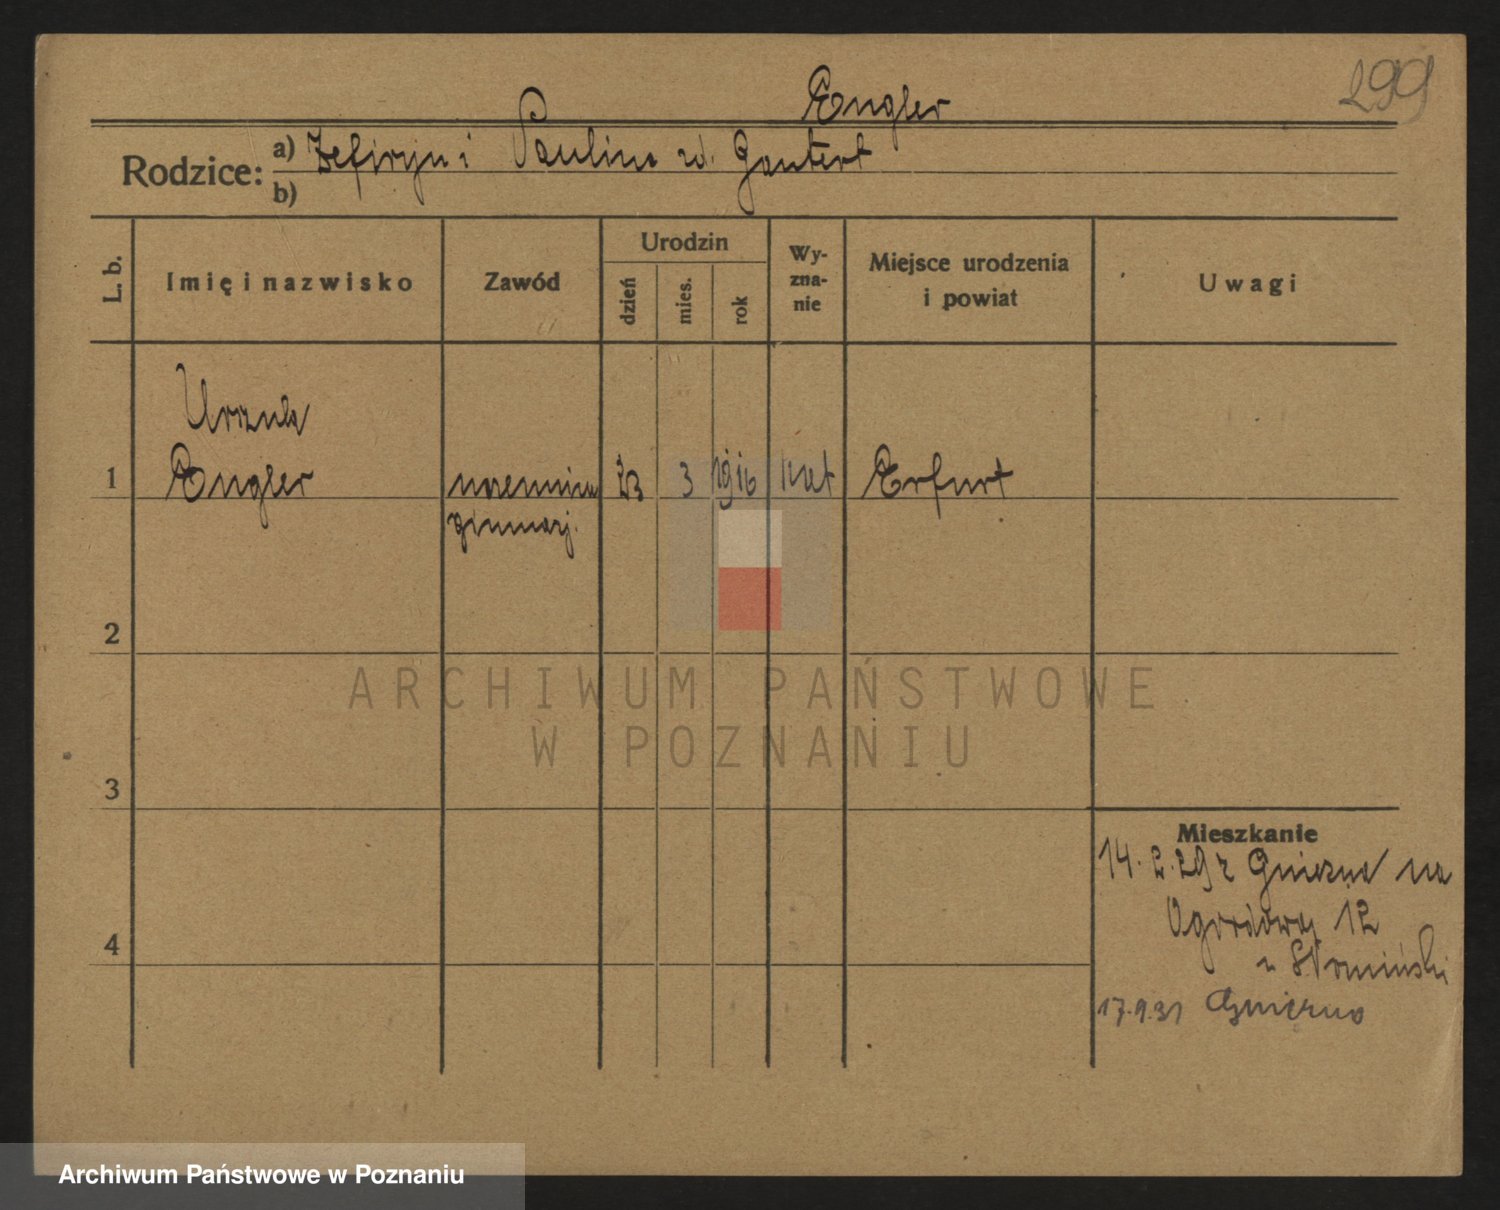 299
Engler
Rodzice: a) Zefiryn i Paulina zd. Gantert
b)
L. b. Imię i nazwisko Zawód Urodzin dzień mies. rok Wy-zna-nie Miejsce urodzenia i powiat Uwagi
Urszula
1 Engler uczennica 23 3 1916 kat Erfurt
gimnazj.
2
ARCHIWUM PAŃSTWOWE
W POZNANIU
3
Mieszkanie
14. 2. 29 z Gniezna na
Ogrodowa 12
4
17.9.31 Gniezno
Archiwum Państwowe w Poznaniu